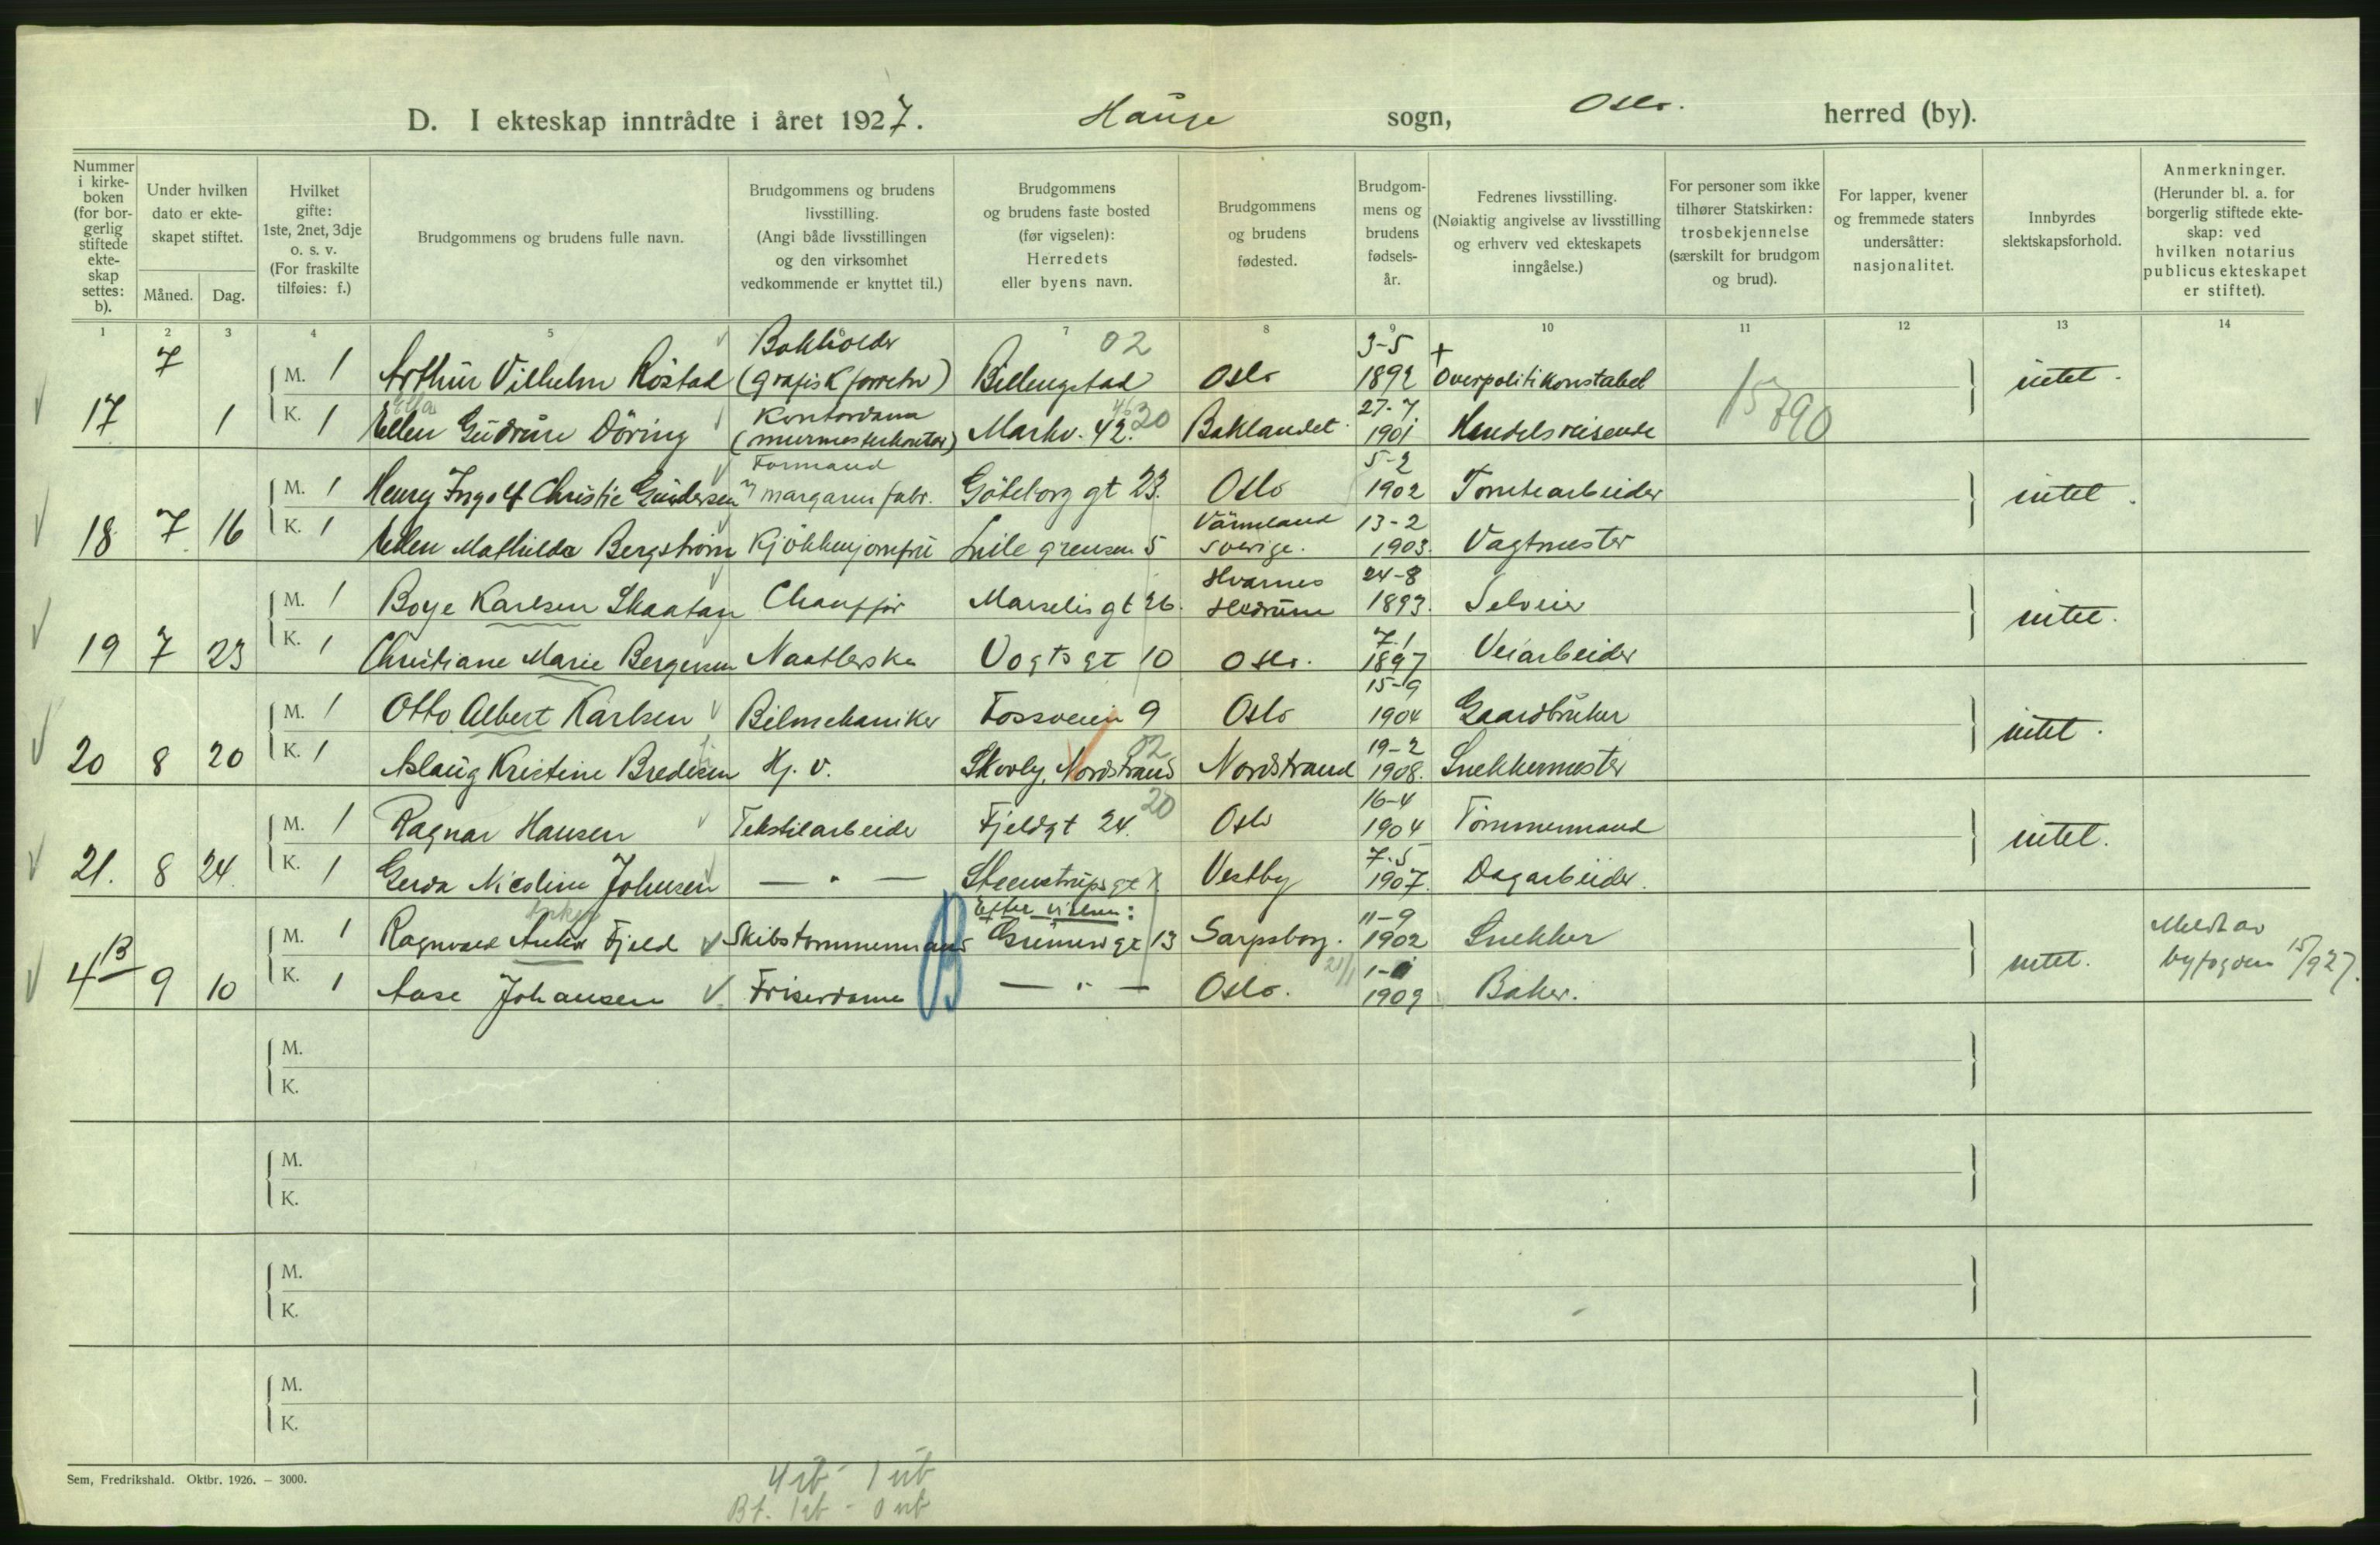 D. I ekteskap inntrådte i året 1927. Hauge sogn, Oslo. herred (by).
Nummer i kirke-boken (for bor-gerlig stiftede ekte-skap settes: b).
Under hvilken dato er ekte-skapet stiftet.
Måned. Dag.
Hvilket gifte: 1ste, 2net, 3dje o. s. v. (For fraskilte tilføies: f.)
Brudgommens og brudens fulle navn.
Brudgommens og brudens livsstilling. (Angi både livsstillingen og den virksomhet vedkommende er knyttet til.)
Brudgommens og brudens faste bosted (før vigselen): Herredets eller byens navn.
Brudgommens og brudens fødested.
Brudgom-mens og brudens fødsels-år.
Fedrenes livsstilling. (Nøiaktig angivelse av livsstilling og erhverv ved ekteskapets inngåelse.)
For personer som ikke tilhører Statskirken: trosbekjennelse (særskilt for brudgom og brud).
For lapper, kvener og fremmede staters undersåtter: nasjonalitet.
Innbyrdes slektskapsforhold.
Anmerkninger. (Herunder bl. a. for borgerlig stiftede ekte-skap: ved hvilken notarius publicus ekteskapet er stiftet).
1 2 3 4 5 6 7 8 9 10 11 12 13 14
7 Bokholder 02 3-5 +
M. 1 Arthur Vilhelm Röstad (grafisk forretn) Billengstad Oslo 1892 Overpolitikonstabel intet.
Ella Kontordame 20 27-7 15790
17 1 K. 1 Ellen Gudrun Döring (murmesterkontor) Markv. 42. Baklandet 1901 Handelsreisende
Formand 5-2
M. 1 Henry Ingolf Christie Gundersen margarinfabr. Göteborg gt 23. Oslo 1902 Tomtearbeider intet.
Värmland 13-2
18 7 16 K. 1 Ellen Mathilda Bergström Kjökkenjomfru Lille grensen 5 Sverige. 1903. Vagtmester
Hvarnes 24-8
M. 1 Boye Karlsen Skaatan Chauffør Marselis gt 26. Hedrum 1893. Selveier intet.
7.1
19 7 23 K. 1 Christiane Marie Bergersen Naatlerske Vogts gt 10 Oslo. 1897 Veiarbeider
15-9
M. 1 Otto Albert Karlsen Bilmekaniker Fossveien 9 Oslo 1904 Gaardbruker intet.
02 19-2
20 8 20 K. 1 Aslaug Kristine Bredesen Hj. v. Skovly, Nordstrand Nordstrand 1908. Snekkermester
20 16-4
M. 1 Ragnar Hansen Tekstilarbeider Fjeldgt 24. Oslo 1904 Tömmermand intet.
7.5
21. 8 24. K. 1 Gerda Nicoline Johnsen — " — Steenstrupsgt Vestby 1907. Dagarbeider.
Efter vielsen: 11-9
M. 1 Ragnvald Anker Fjeld Skibstømmermand Grünersgt 13 Sarpsborg. 1902 Snekker intet. Meldt av
B 21/1 byfogden 15/9 27.
4 9 10 K. 1 Aase Johansen Friserdame — " — Oslo. 1909 Baker.
M.
K.
M.
K.
M.
K.
M.
K.
Sem, Fredrikshald. Oktbr. 1926. — 3000.